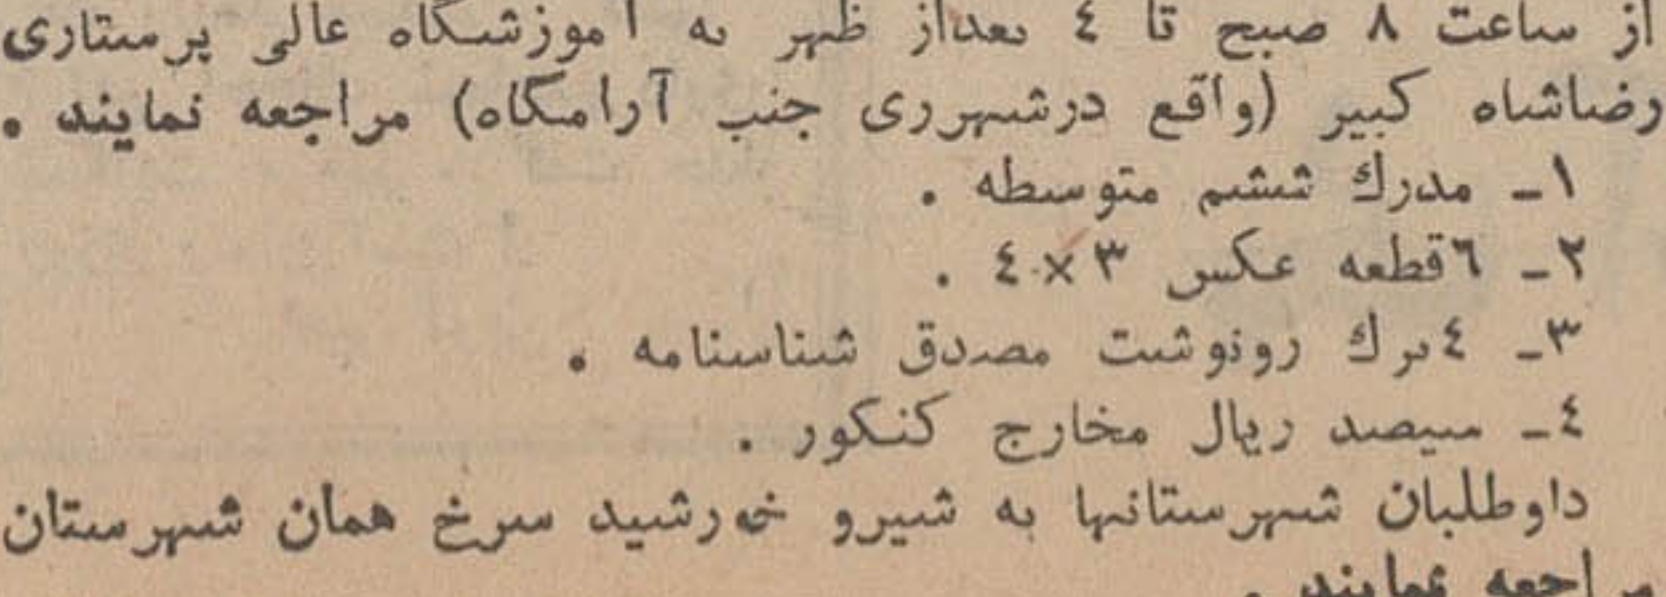 از ساعت ۸ صبح تا ٤ بعداز ظهر به آموزشگاه عالی پرستاری
رضاشاه کبیر (واقع درشهرری جنب آرامگاه) مراجعه نمایند .
۱ـ مدرك ششم متوسطه .
۲ـ ٦قطعه عکس ۳×٤ .
۳ـ ٤برك رونوشت مصدق شناسنامه .
٤ـ سیصد ریال مخارج کنکور .
داوطلبان شهرستانها به شیرو خورشید سرخ همان شهرستان
مراجعه نمایند .